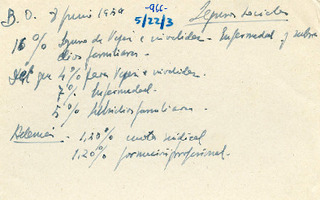 -966-
B. O. 8 junio 1959 Seguros sociales
5/22/3
16 % Seguro de Vejez e invalidez - Enfermedad y subsi
dios familiares.
Del que 4% para Vejez e invalidez.
7% Enfermedad.
5% Subsidios familiares.
Además - 1,80% cuota sindical
1,20% formación profesional.